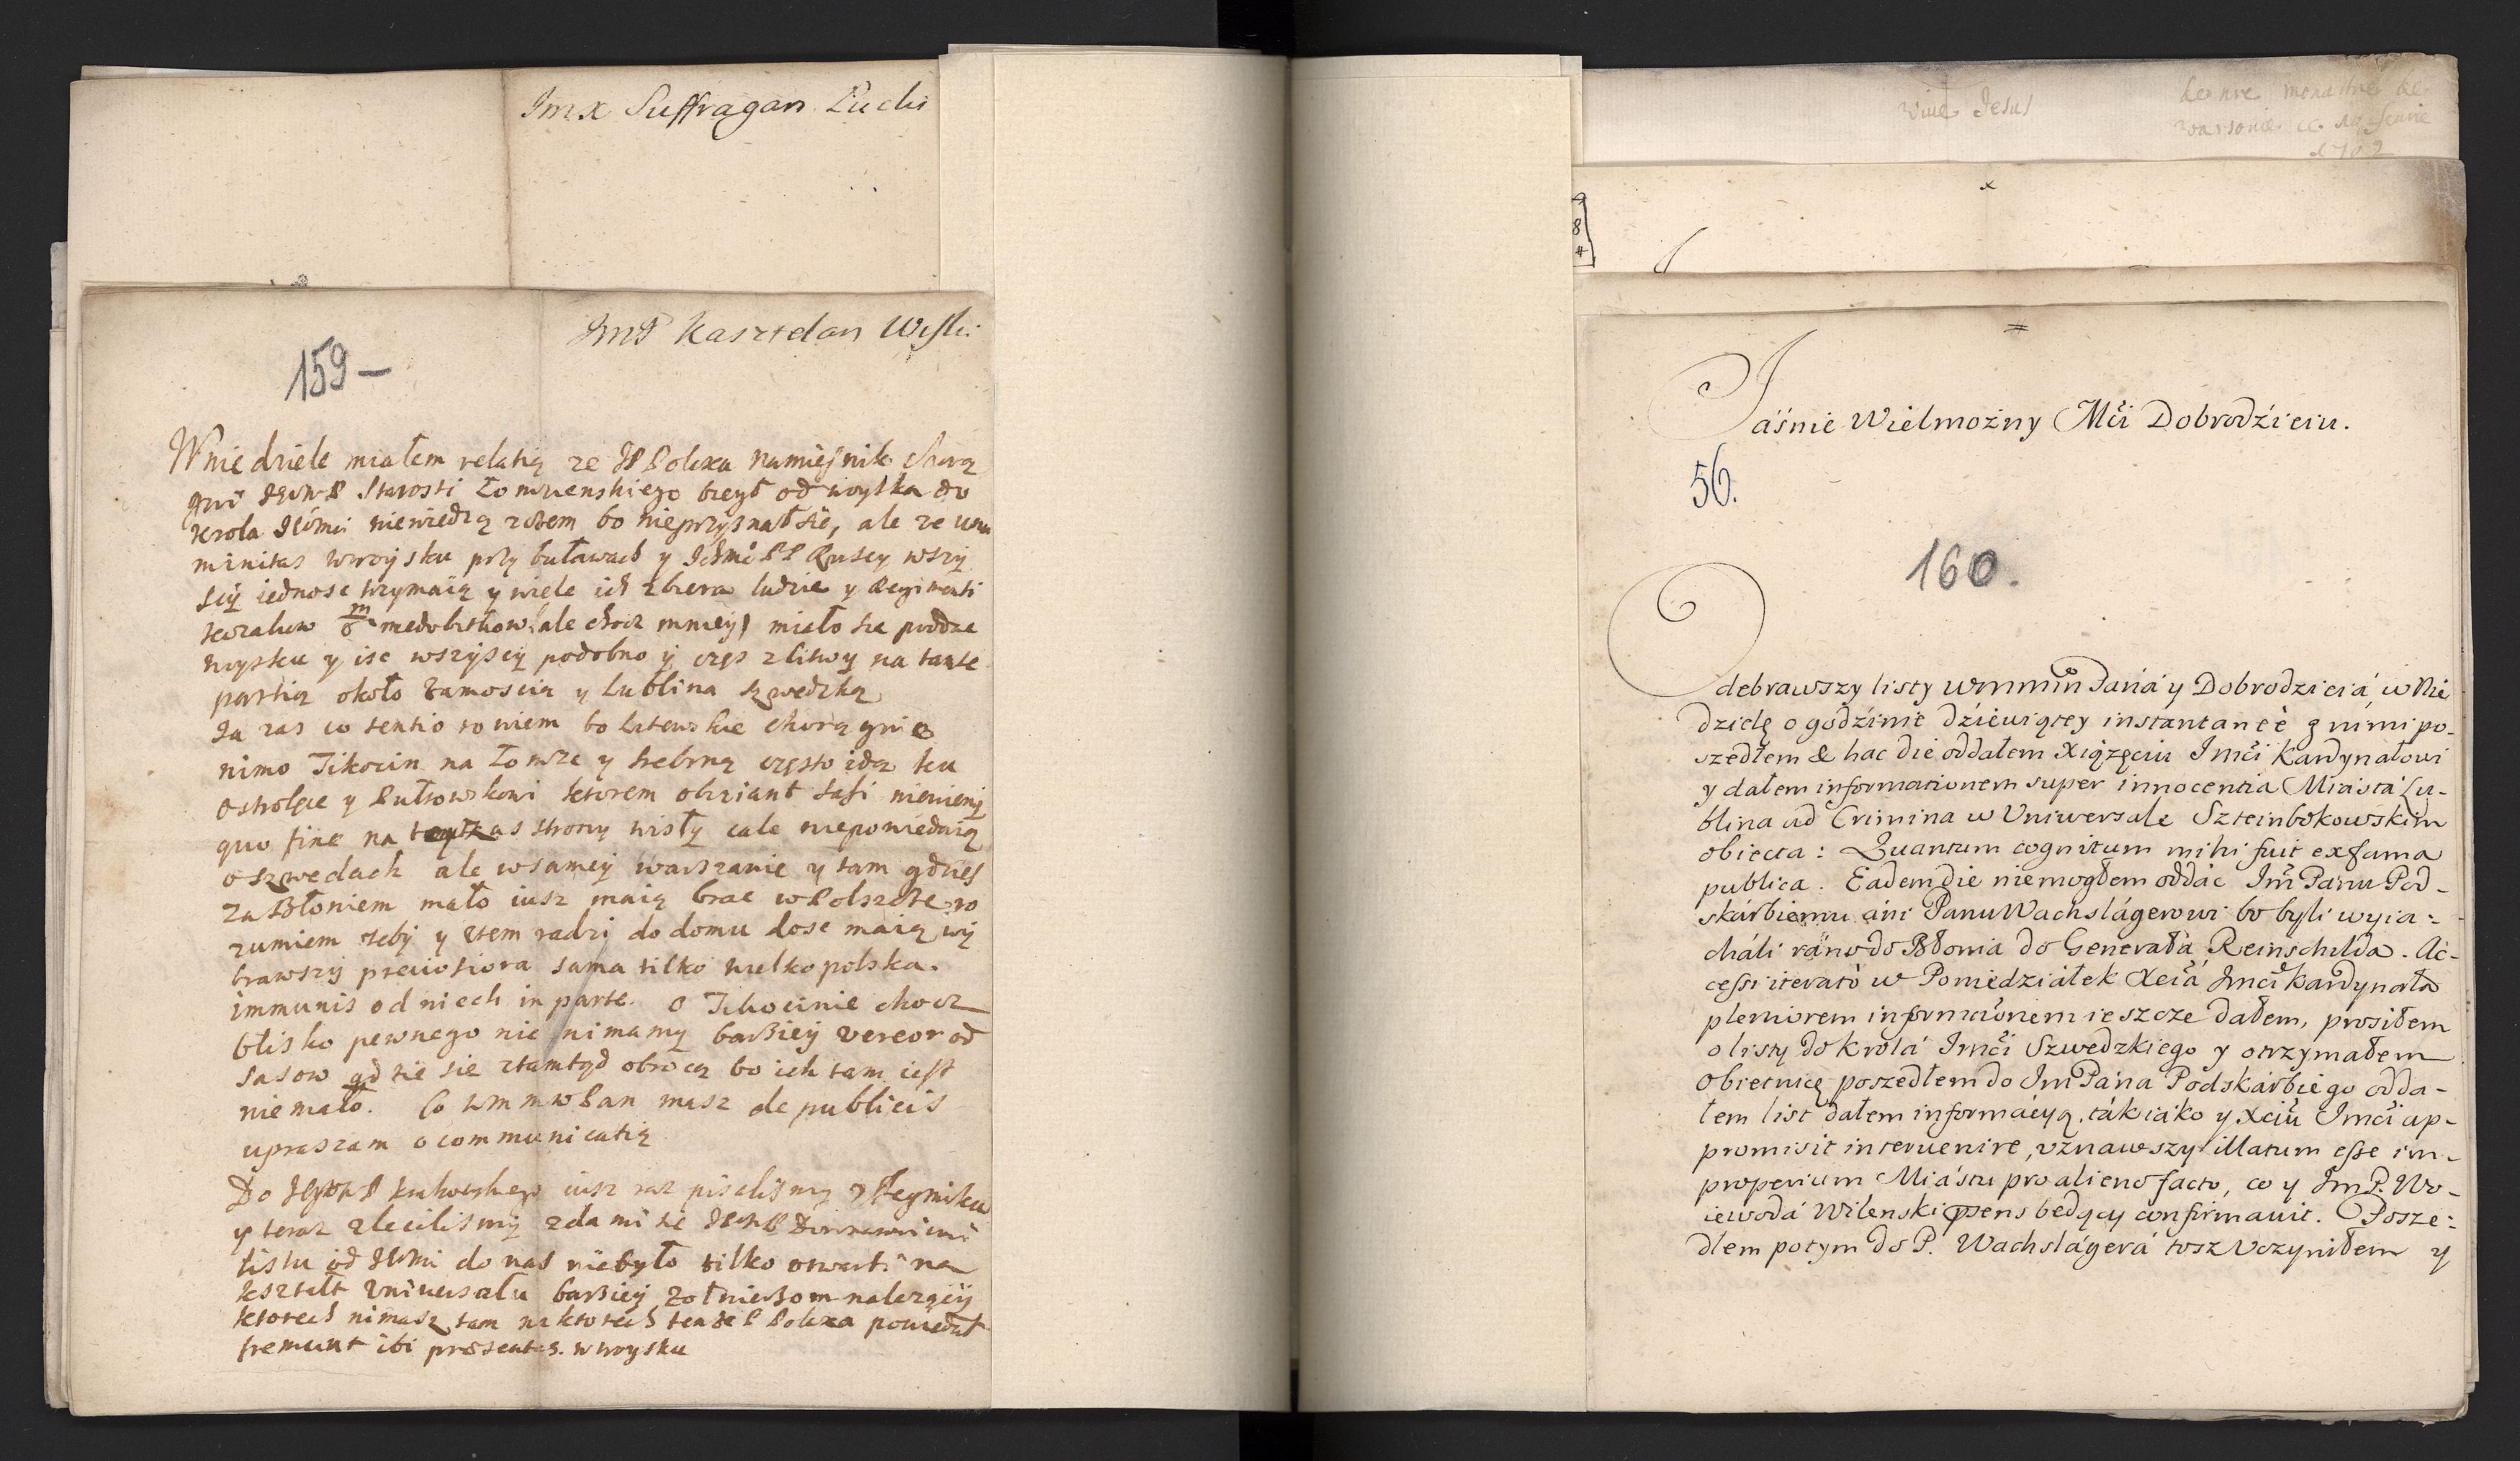 Imx Suffragan Lucki
ImP Kasztelan Wisli:
159 —
W niedziele miałem relatią ze JP Polixa namiesnik chorą
Starosti Łomzenskiego biegł od woyska do
krola JKmci niewiedzą zczem bo nieprzyznał sie, ale ze una
nimitas w woysku przy buławach y Ruscy wszy
scy iednosc trzymaią y wiele ich zbiera ludzie y Regimenti
ale choc mniey) miało sie poddac
woysku y isc wszyscy podobno y częs z litwy na tante
partią około Zamoscia y Lublina szwedzką
Ia zas co tentio to niem bo litewskie chorągnie
nimo Tikocin na Łomze y srebrną często idą ku
ostrolęce y Pułtowskowi ktorem obviant Sasi niewiem
quo fine na strony wisły cale niepowiedaią
o szwedach ale w samey warszawie y tam gdzies
za Błoniem mało iusz maią brac w Polszcze ro
zumiem zeby y ztem radzi do domu dosc maią wy
brawszy preciosiora sama tilko wielkopolska.
immunis od niech in parte. O Tikocinie chocz
blisko pewnego nic nimamy barziey vereor od
Sasow gdzie sie ztamtąd obrocą bo ich tam iest
niemało. Co wmmwPan masz de publicis
upraszam o communicatią
Do iusz raz pisalismy
y teraz zlecilismy zda mi sie
listu od JKMci do nas niebyło tilko otwarti na
kształt Vniwersału barziey Zołnierzom nalezący
ktorech nimasz tam na ktorech tenze P Polixa powiedał
fremunt ibi presentes. w woysku
Viue Jesus
de nre monastere de
1702
x
9
8
4
=
Jáśnie Wielmożny Mći Dobrodźieiu.
56.
160.
Odebrawszy listy wmmm Páná y Dobrodzieiá, w Nie
dzielę o godźinie dźiewiątey instantaneè z nimi po-
szedłem & hac die oddałem Xiążęciu Imći Kardynałowi
y dałem informationem super innocentia Miástá Lu-
blina ad Crimina w Vniwersale Szteinbokowskim
obiecta: Quantum cognitum mihi fuit ex fama
publica. Eadem die niemogłem oddać Im Panu Pod-
skárbiemu áni Panu Wachslágerowi bo byli wyia-
cháli ráno do Błonia do Generała Reinschilda. Ac-
cessi iteratò w Poniedziałek Xciá Imći Kardynała
pleniorem informationem ieszcze dałem, prosiłem
o listy do Krolá Imći Szwedzkiego y otrzymałem
obietnicę poszedłem do Im Pána Podskárbiego odda-
łem list dałem informácyą, ták iáko y Xciu Imći ap-
promisit interuenire, vznawszy illatum esse im-
properium Miástu pro alieno facto, co y Im P. Wo-
iewodá Wilenski prsens będący confirmauit. Posze-
dłem potym do P. Wachslágerá tosz Vczyniłem y